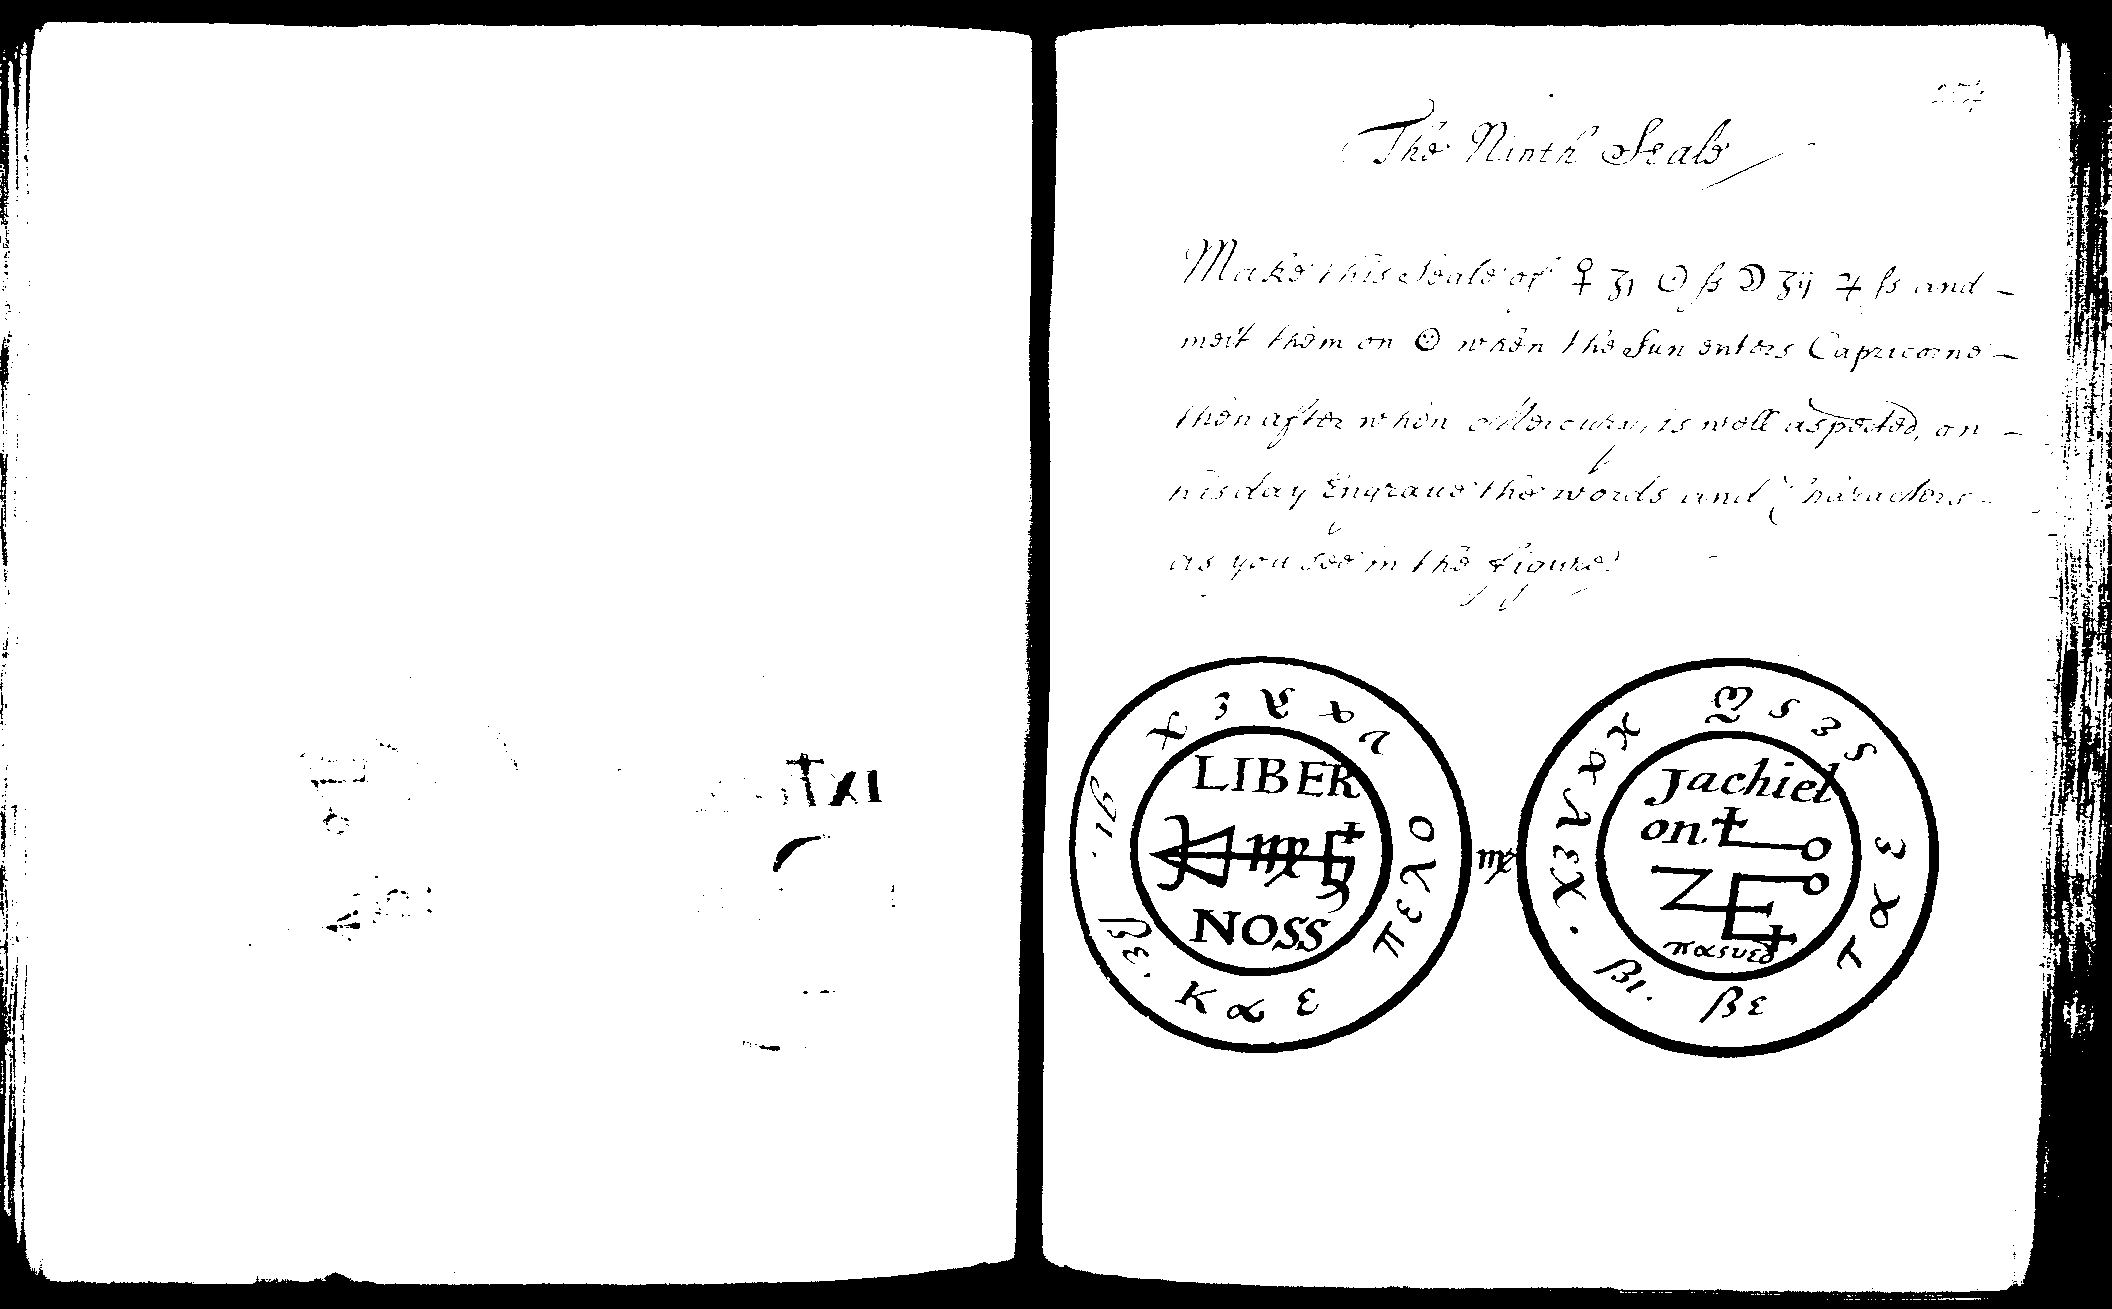 The Ninth Seale
Make this Seale of ♀ ʒı ☉ ß ☽ ʒij ♃ ß and
melt them on ☉ when the Sun enters Capricorne
then after when Mercury, is well aspected, on
his day Engraue the words and Characters
as you see in the figure
LIBER
♍
NOSS
♍
Jachiel
on.
πασυεδ
πελο
κ α ε
βι. βε
τ α ε